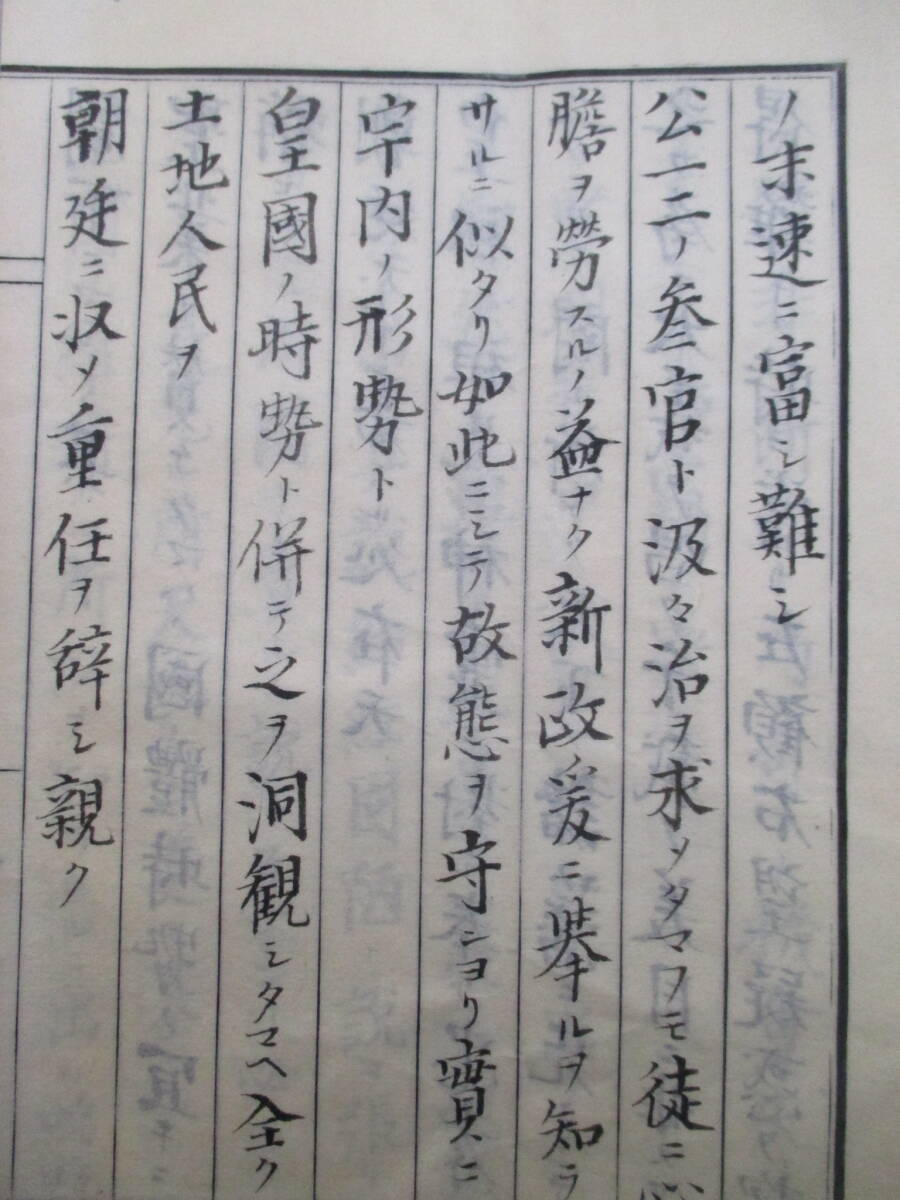 ノ末速ニ富シ難シ
公一二ノ叄官ト汲々治ヲ求メタマフモ徒ニ心
膽ヲ勞スルノ益ナク新政ノ爰ニ擧ルヲ知ラ
サルニ似タリ如此ニシテ故態ヲ守ンヨリ實ニ
宇内ノ形勢ト
皇國ノ時勢ト併テ之ヲ洞観シタマヘ全ク
土地人民ヲ
朝廷ニ収メ重任ヲ辞シ親ク